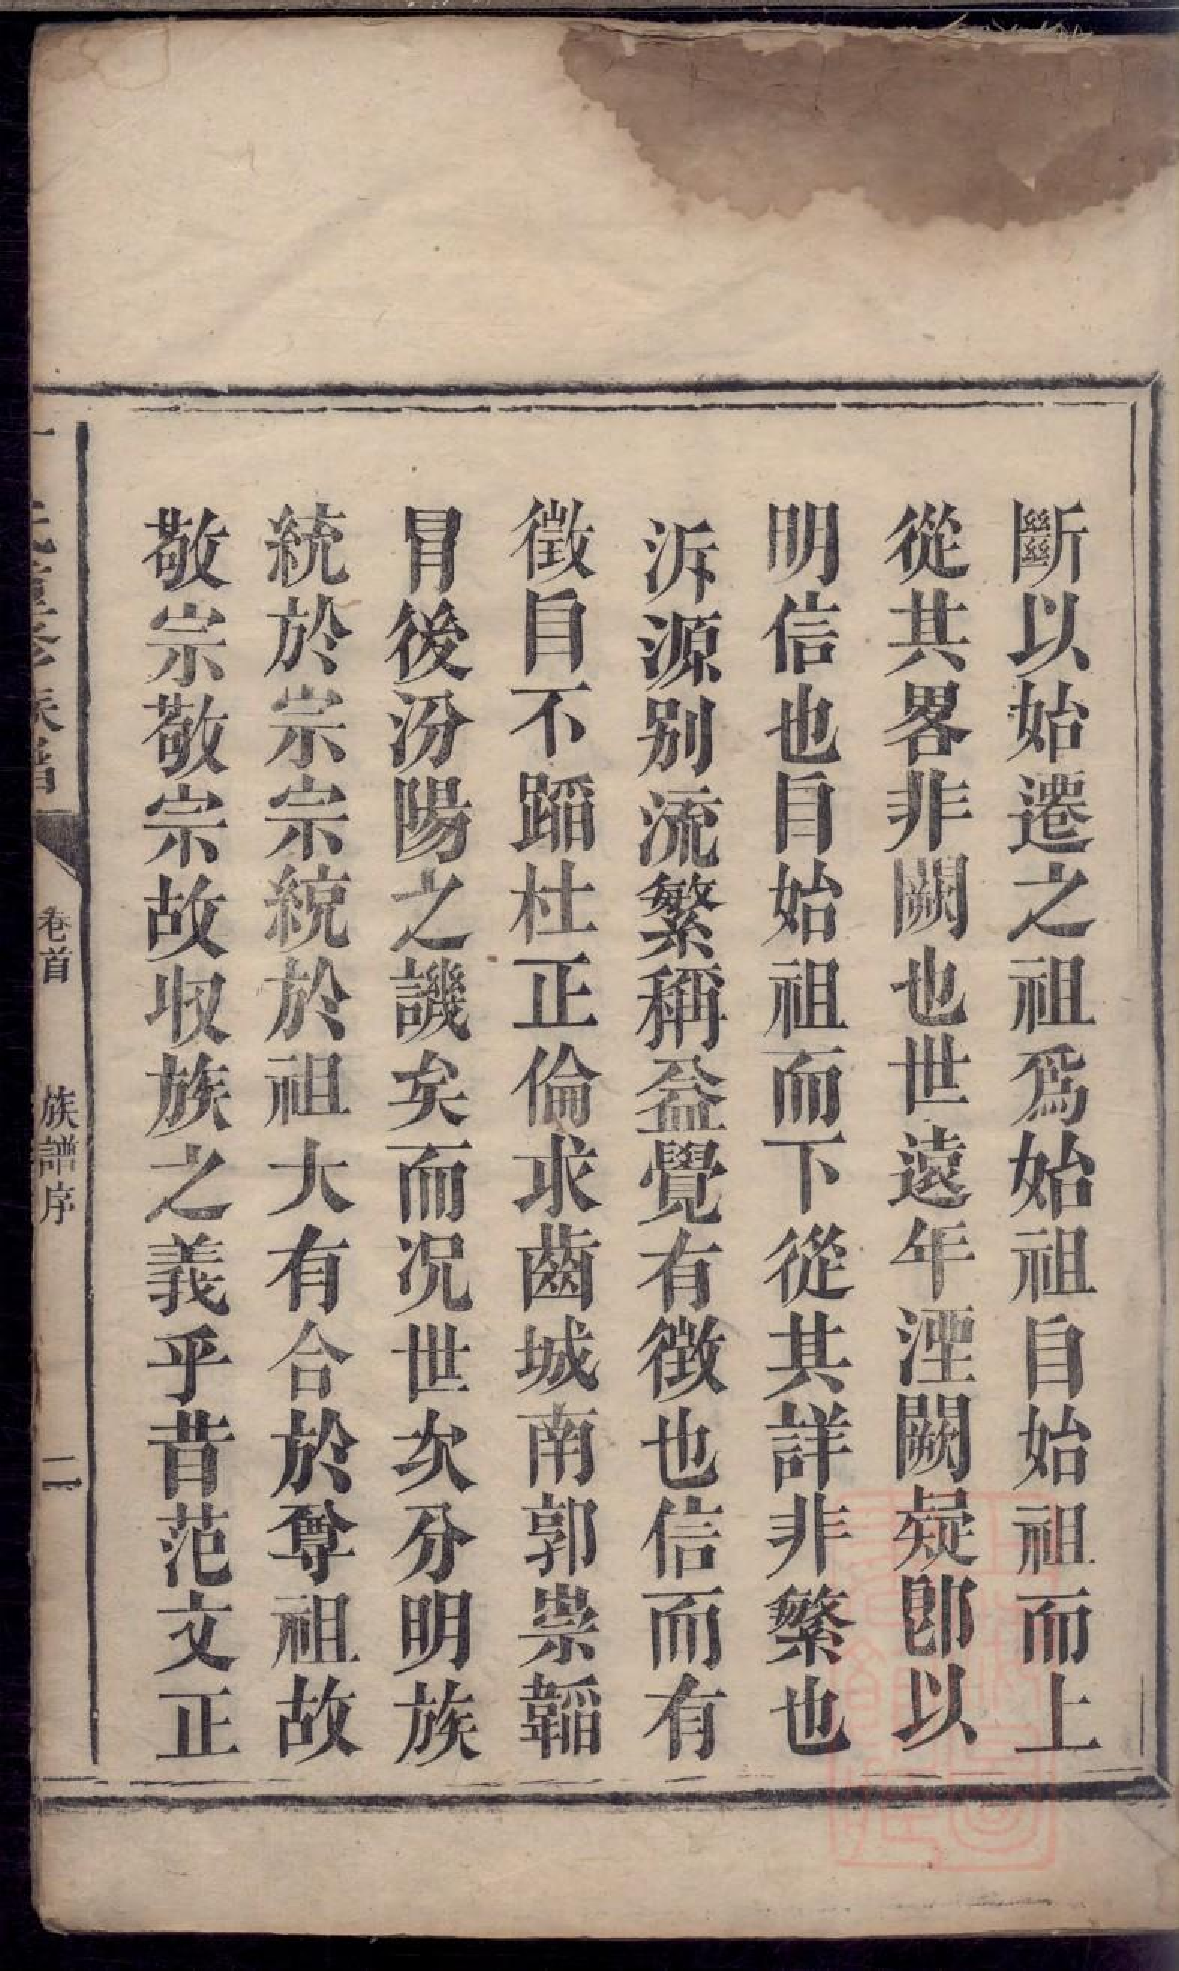 斷以始遷之祖爲始祖自始祖而上
從其畧非闕也世遠年湮闕疑卽以
明信也自始祖而下從其詳非繁也
泝源别流繁稱益覺有徵也信而有
徵自不蹈杜正倫求齒城南郭崇韜
冐後汾陽之譏矣而况世次分明族
統於宗宗統於祖大有合於尊祖故
敬宗敬宗故收族之義乎昔范文正
卷首 族譜序 二